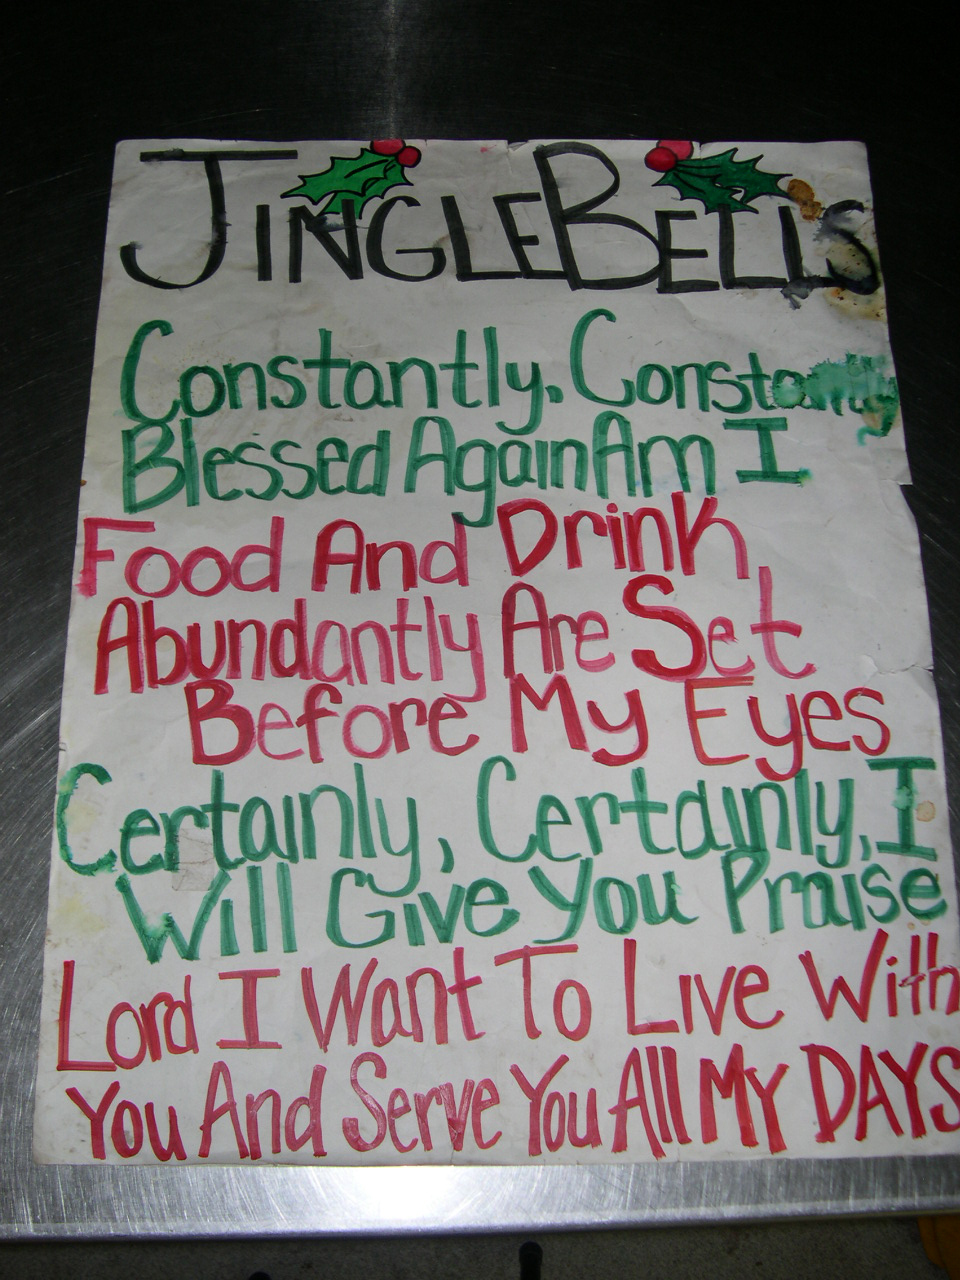 JINGLE BELLS
Constantly, Constantly
Blessed Again Am I
Food And Drink
Abundantly Are Set
Before My Eyes
Certainly, Certainly, I
Will Give You Praise
Lord I Want To Live With
You And Serve You All My DAYS